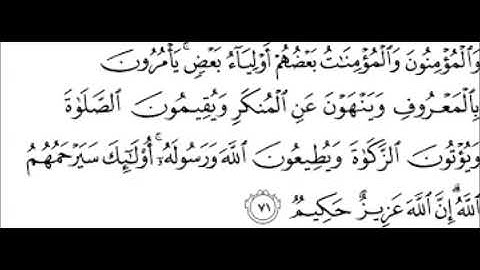 وَٱلْمُؤْمِنُونَ وَٱلْمُؤْمِنَٰتُ بَعْضُهُمْ أَوْلِيَآءُ بَعْضٍ ۚ يَأْمُرُونَ
بِٱلْمَعْرُوفِ وَيَنْهَوْنَ عَنِ ٱلْمُنكَرِ وَيُقِيمُونَ ٱلصَّلَوٰةَ
وَيُؤْتُونَ ٱلزَّكَوٰةَ وَيُطِيعُونَ ٱللَّهَ وَرَسُولَهُۥٓ ۚ أُو۟لَٰٓئِكَ سَيَرْحَمُهُمُ
ٱللَّهُ ۗ إِنَّ ٱللَّهَ عَزِيزٌ حَكِيمٌ ٧١